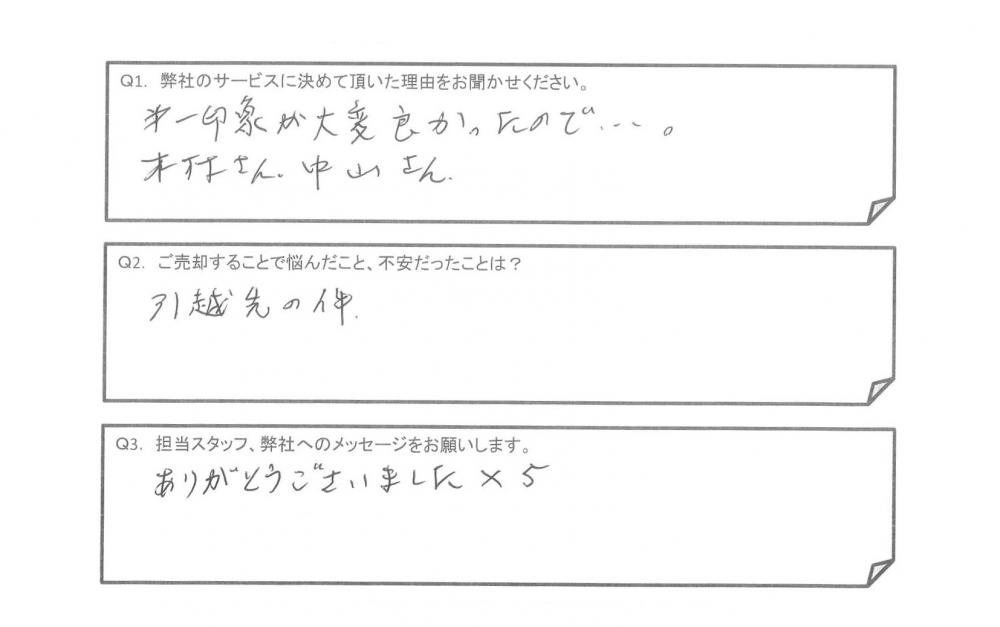 Q1. 弊社のサービスに決めて頂いた理由をお聞かせください。
第一印象が大変良かったので、、、。
木村さん。中山さん.
Q2. ご売却することで悩んだこと、不安だったことは？
引越先の件.
Q3. 担当スタッフ、弊社へのメッセージをお願いします。
ありがとうございました×5